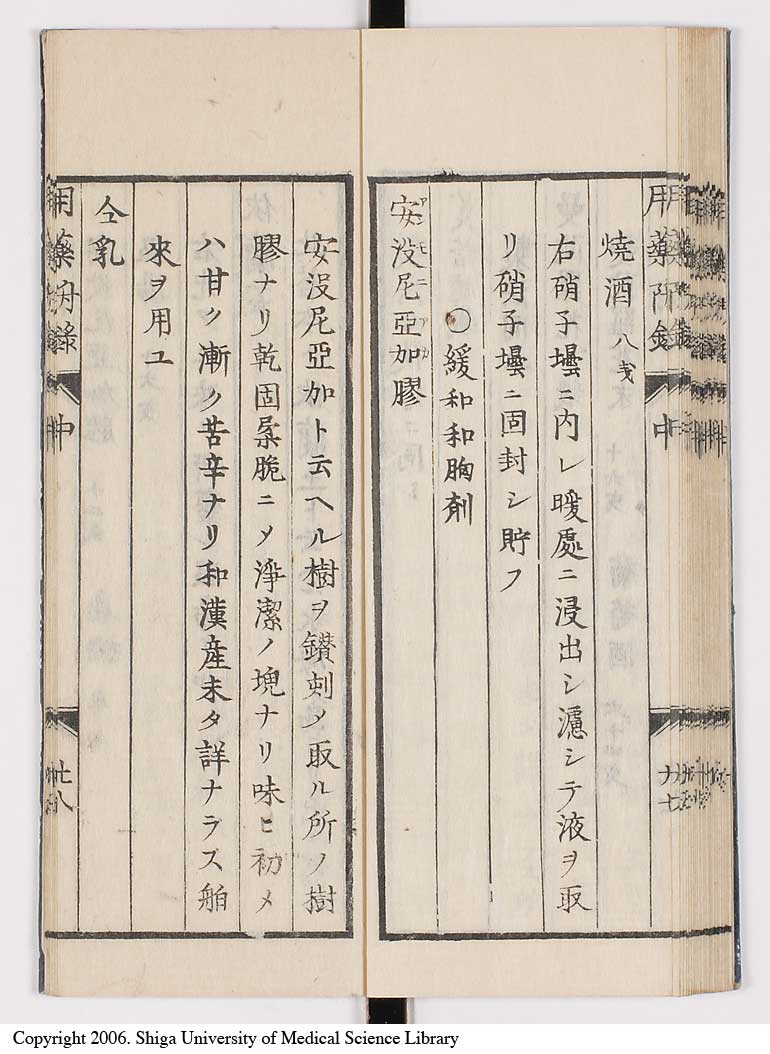 用藥附錄 中 廿七
燒酒 八戔
右硝子壜ニ内レ暖處ニ浸出シ濾シテ液ヲ取
リ硝子壜ニ固封シ貯フ
〇緩和和胸剤
安没尼亞加膠
アンモニアカ
安没尼亞加ト云ヘル樹ヲ鑚刺メ取ル所ノ樹
膠ナリ乾固脆ニメ淨潔ノ塊ナリ味ヒ初メ
ハ甘ク漸ク苦辛ナリ和漢産未タ詳ナラズ舶
來ヲ用ユ
仝乳
用藥附録 中 廿八
Copyright 2006. Shiga University of Medical Science Library